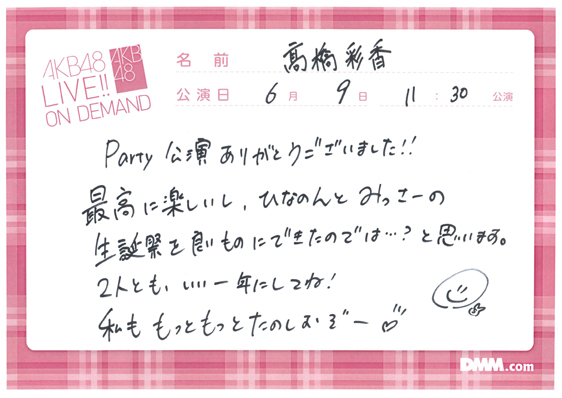 AKB48
LIVE!!
ON DEMAND
AKB
48
名前 髙橋彩香
公演日 6月 9日 11:30 公演
Party 公演ありがとうございました!!
最高に楽しいし、ひなのんとみっさーの
生誕祭を良いものにできたのでは…?と思います。
2人とも、いい一年にしてね!
私ももっともっとたのしむぞー
DMM.com